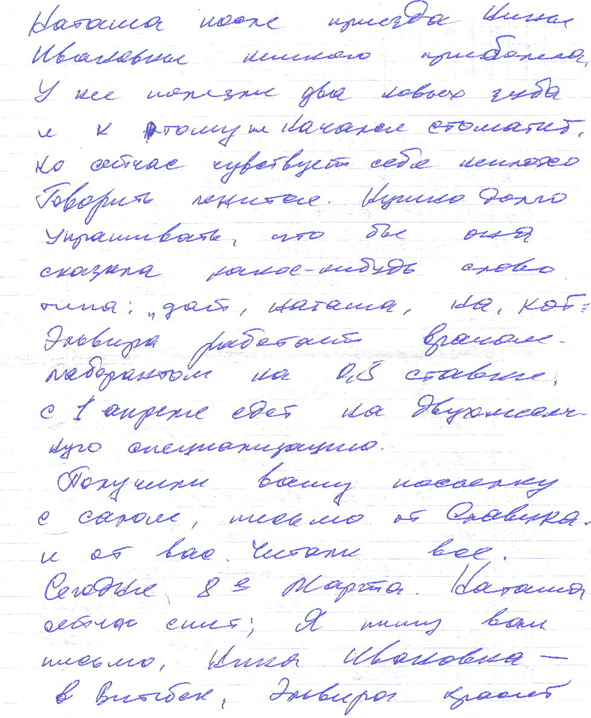 Наташа после приезда Нины
Ивановны немного приболела,
У нее полезли два новых зуба
и к тому же начался стоматит,
но сейчас чувствует себя неплохо
Говорить ленится. Нужно долго
упрашивать, что бы она
сказала какое-нибудь слово
типа: "дай, Наташа, на, кот"
Эльвира работает врачом-
лаборантом на 0,5 ставки,
с 1 апреля едет на двухмесяч-
ную специализацию.
Получили вашу посылку
с салом, письмо от Славика.
и от вас. Читали все.
Сегодня 8 е Марта. Наташа
сейчас спит; Я пишу вам
письмо, Нина Ивановна —
в Витебск, Эльвира красит